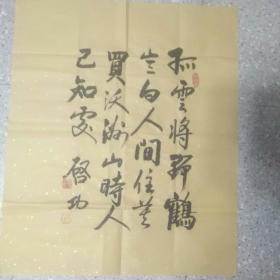 孤雲將野鶴
豈向人間住莫
買沃洲山時人
已知處 啓功